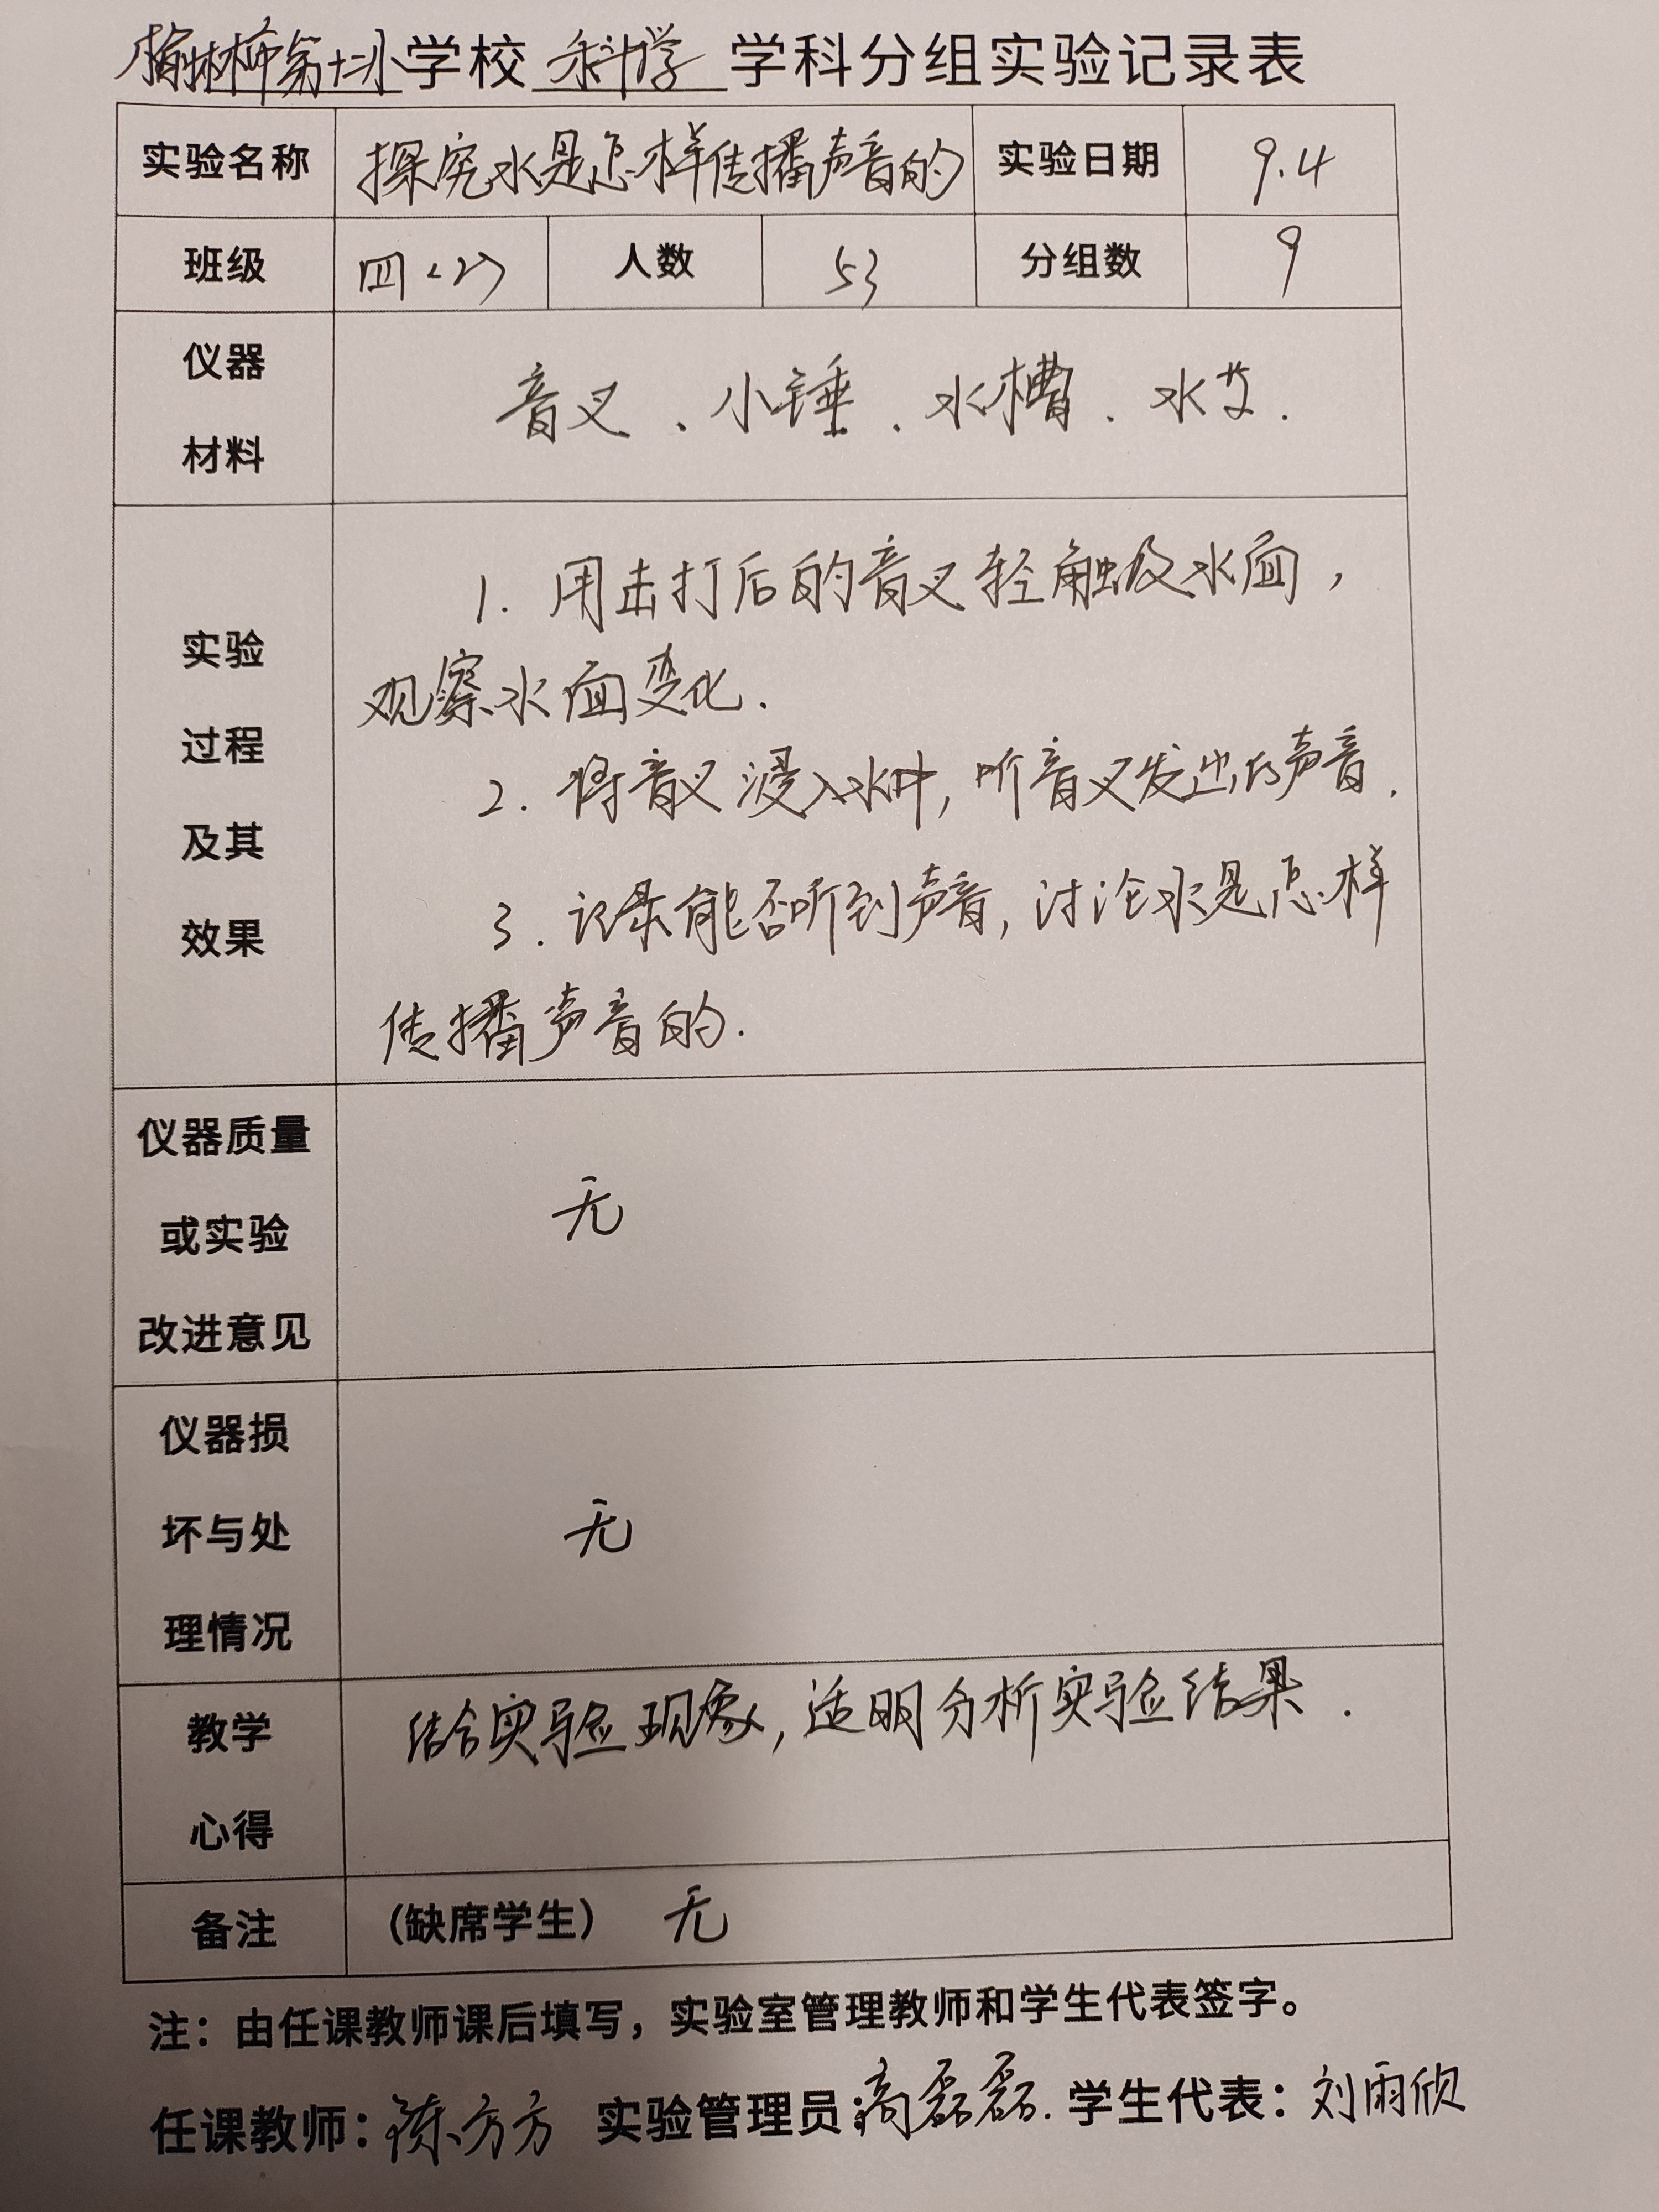 榆林市第十二小学校 科学 学科分组实验记录表
实验名称 探究水是怎样传播声音的 实验日期 9.4
班级 四（2） 人数 53 分组数 9
仪器
材料
音叉、小锤、水槽、水 等.
实验
过程
及其
效果
1. 用击打后的音叉轻触及水面，
观察水面变化.
2. 将音叉浸入水中，听音叉发出的声音.
3. 记录能否听到声音，讨论水是怎样
传播声音的.
仪器质量
或实验
改进意见
无
仪器损
坏与处
理情况
无
教学
心得
结合实验现象，透明分析实验结果.
备注 （缺席学生） 无
注：由任课教师课后填写，实验室管理教师和学生代表签字。
任课教师：方方 实验管理员：高磊磊. 学生代表：刘雨欣